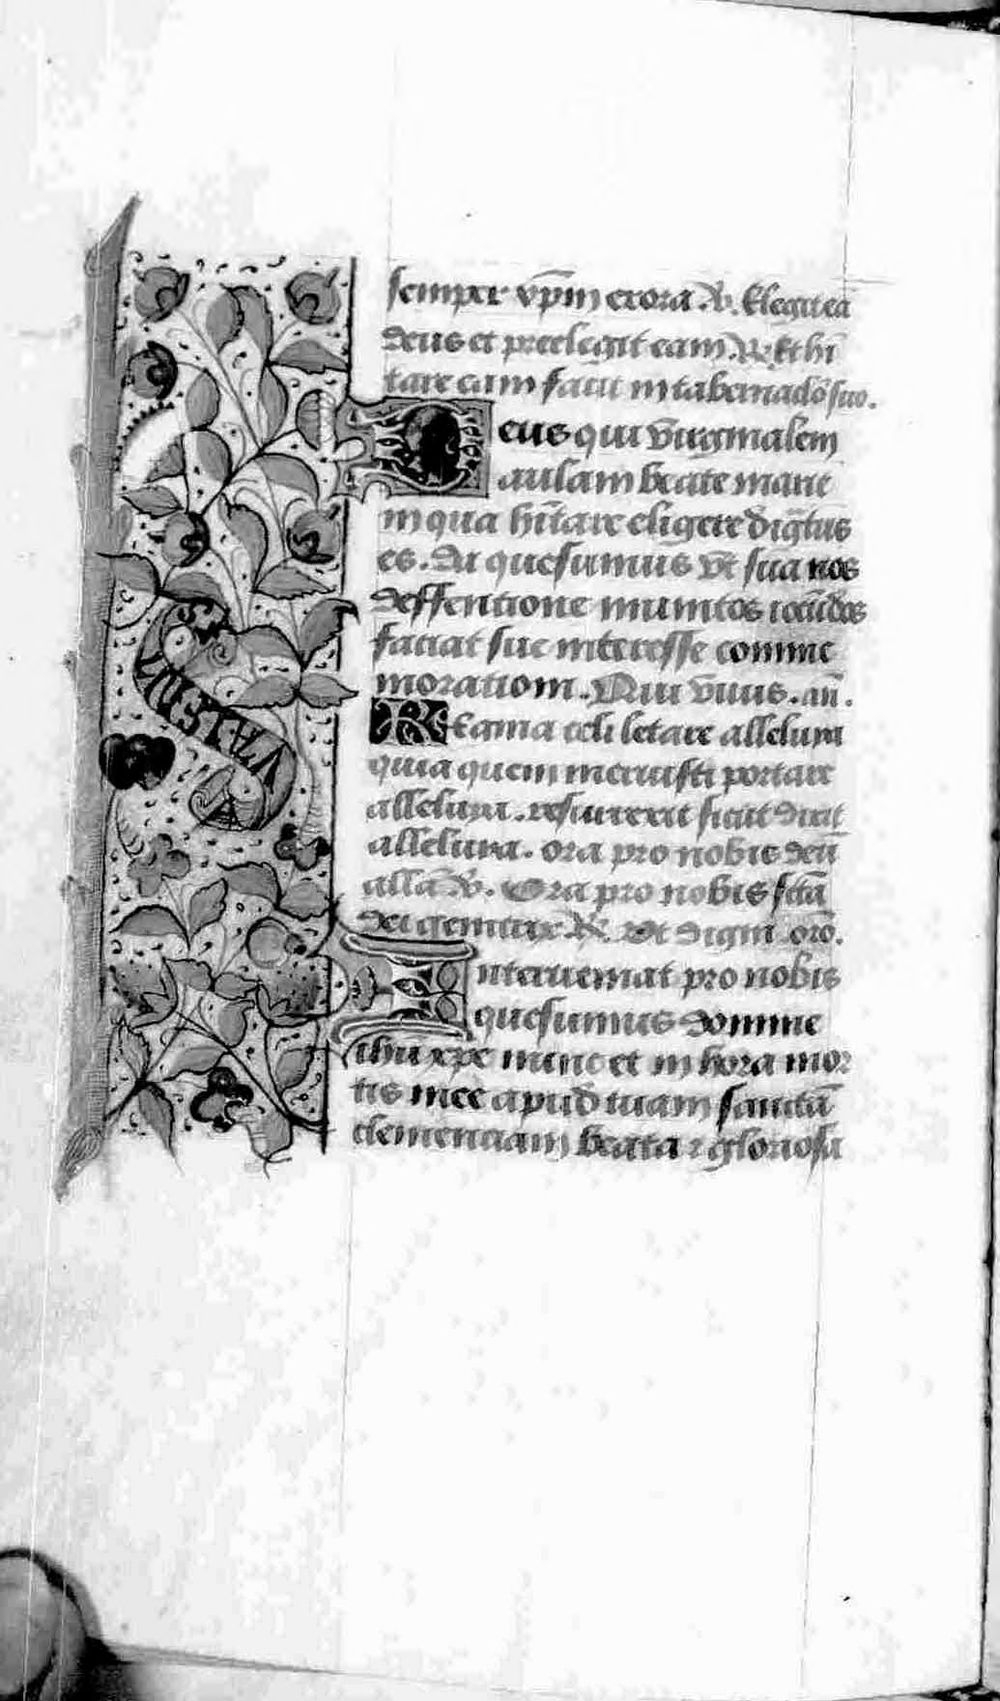 semper xp̄m exora. V̶. Elegit eā
deus et preelegit eam. R̶. Et hī
tare eam facit in tabernac̄lo suo.
Deus qui v̄irginalem
aulam beate marie
in qua hītare eligere dignatus
es. Da quesumus vt̄ sua nos
deffentione munitos iocūdos
faciat sue interesse comme
moratiom. Qui viuis. añ.
Regina celi letare alleluya
quia quem meruisti portare
alleluya. resurrexit sicut dixit
alleluya. ora pro nobis deū
allā. V̶. Ora pro nobis sctā
dei genitrix. R̶. Vt digni. orō.
Interueniat pro nobis
quesumus domine
ihū xpe nunc et in hora mor
tis mee apud tuam sanctā
clementiam beata ⁊ gloriosa